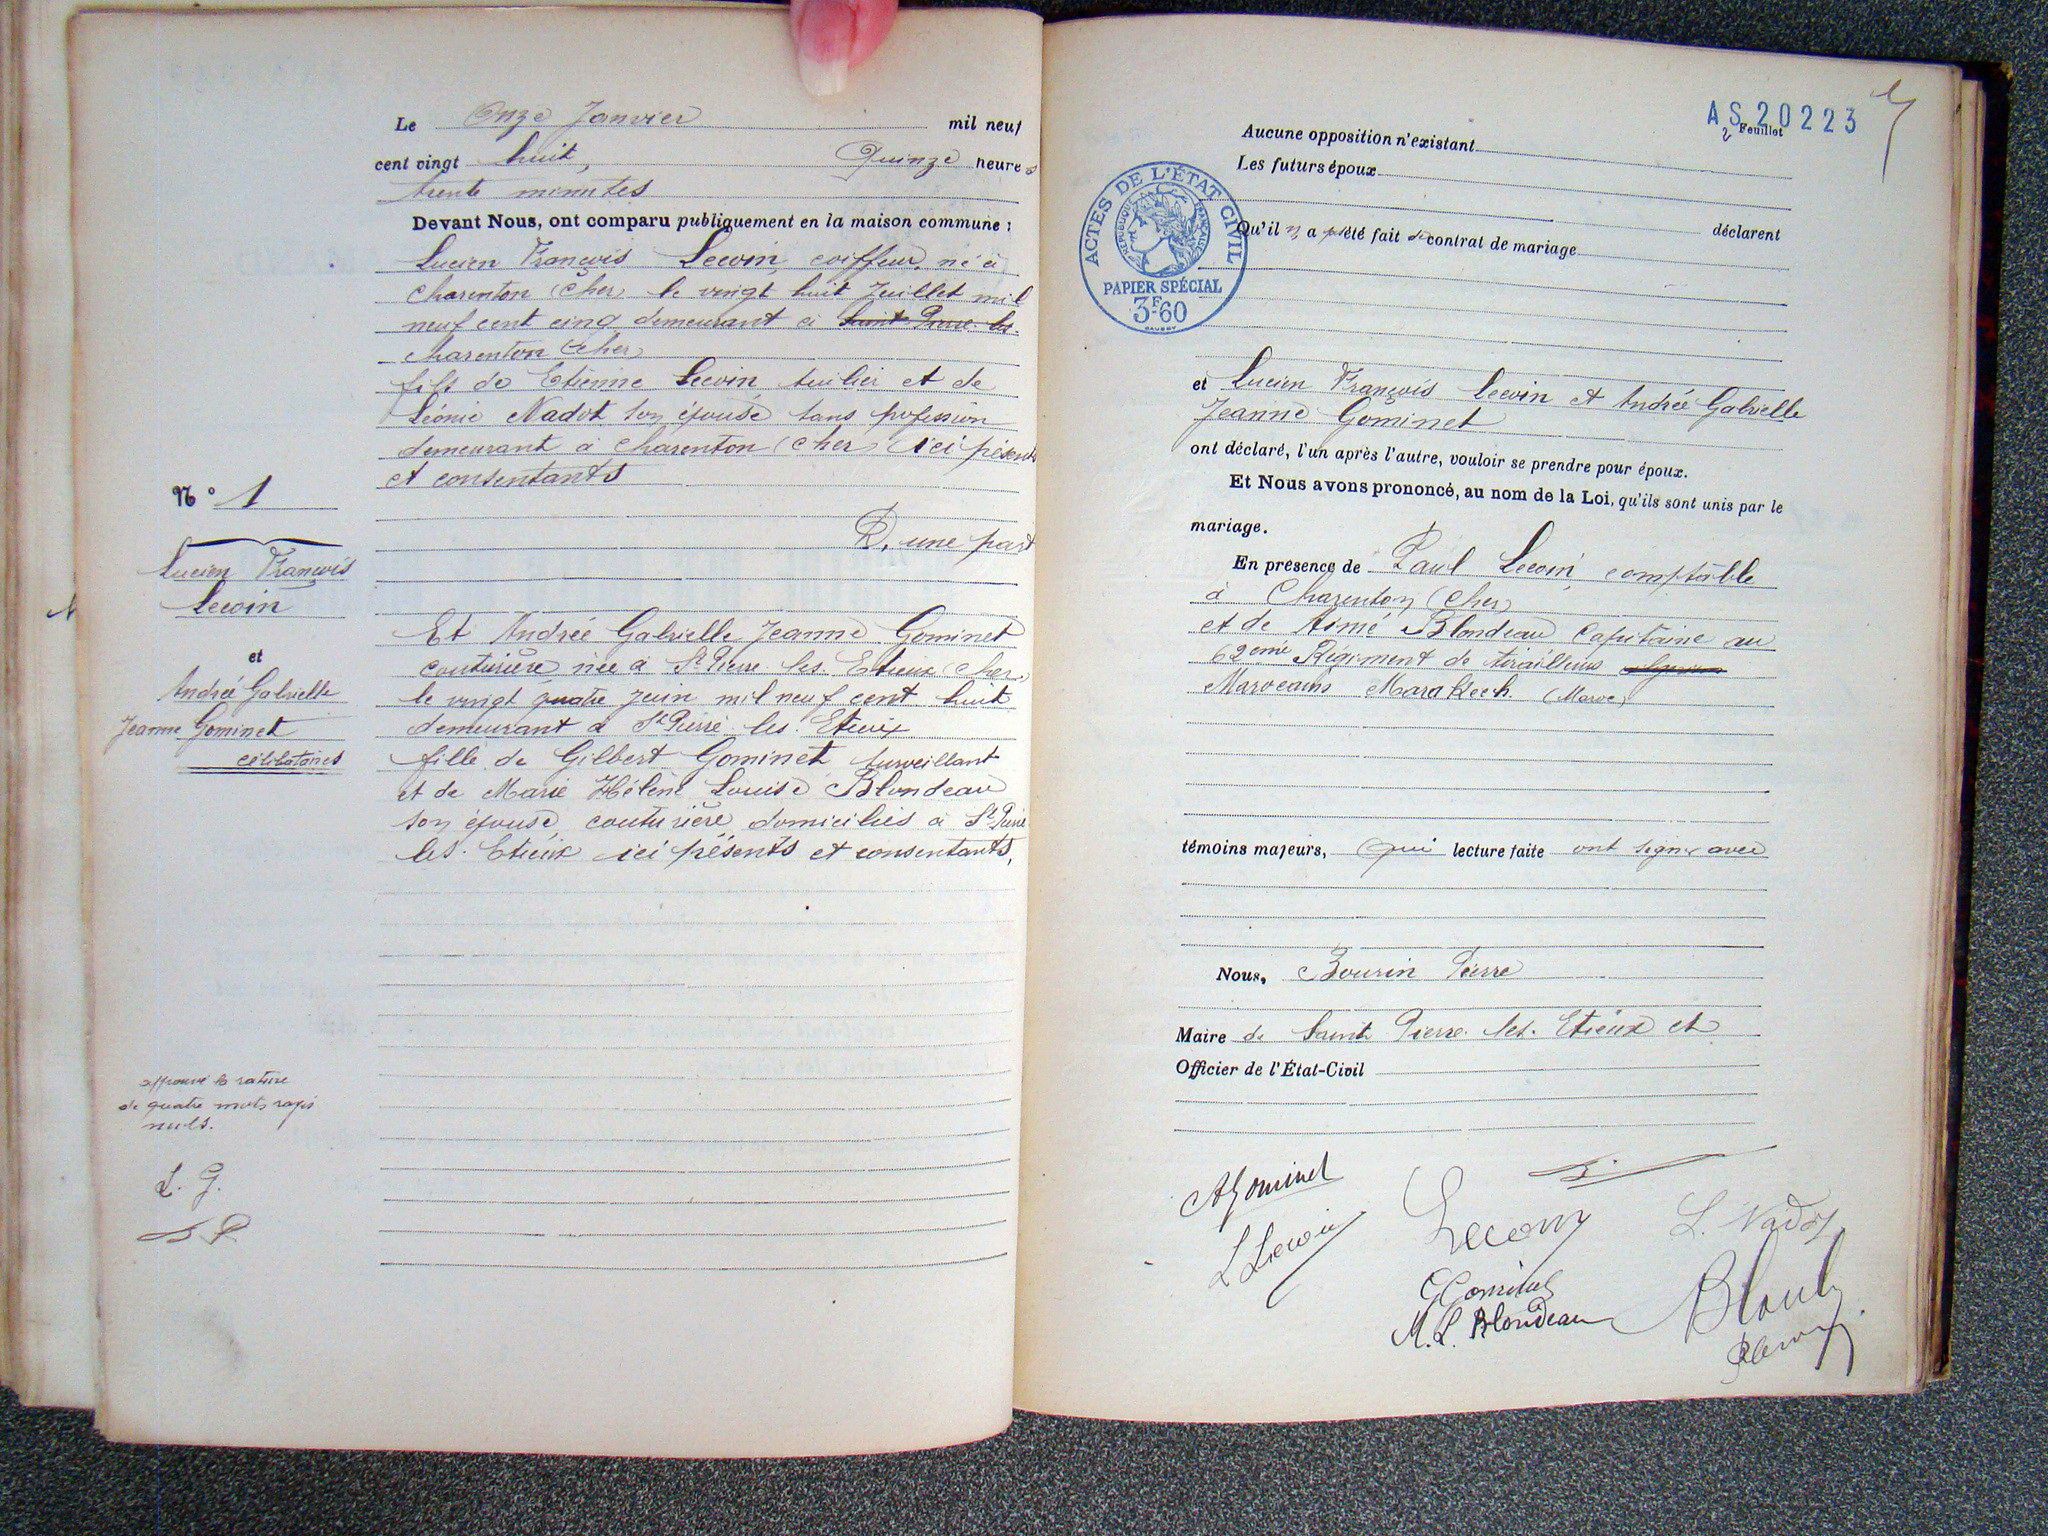 Le Onze Janvier mil neuf
cent vingt huit, Quinze heures
trente minutes
Devant Nous, ont comparu publiquement en la maison commune :
Lucien François Lecoin, coiffeur, né à
Charenton (Cher) le vingt huit Juillet mil
neuf cent cinq demeurant à Saint Pierre les
Charenton (Cher)
fils de Etienne Lecoin, tuilier et de
Léonie Nadot son épouse sans profession
demeurant à Charenton (Cher) ici présents
et consentants
D'une part
N° 1
Lucien François
Lecoin
et
Andrée Gabrielle
Jeanne Gominet
célibataires
Et Andrée Gabrielle Jeanne Gominet
couturière née à St Pierre les Etieux (Cher)
le vingt quatre juin mil neuf cent huit
demeurant à St Pierre les Etieux
fille de Gilbert Gominet surveillant
et de Marie Hélène Louise Blondeau
son épouse couturière domiciliés à St Pierre
les Etieux ici présents et consentants,
approuvé la rature
de quatre mots rayés
nuls.
L. G.
AS 20223
2 Feuillet
Aucune opposition n'existant
Les futurs époux
déclarent
Qu'il n'a pas été fait de contrat de mariage
ACTES DE L'ÉTAT CIVIL
RÉPUBLIQUE FRANÇAISE
PAPIER SPÉCIAL
3F60
et Lucien François Lecoin et Andrée Gabrielle
Jeanne Gominet
ont déclaré, l'un après l'autre, vouloir se prendre pour époux.
Et Nous avons prononcé, au nom de la Loi, qu'ils sont unis par le
mariage.
En présence de Paul Lecoin, comptable
à Charenton (Cher)
et de Aimé Blondeau Capitaine au
62ème Régiment de tirailleurs
Marocains Marakech (Maroc)
témoins majeurs, Qui lecture faite ont signé avec
Nous, Bourin Pierre
Maire de Saint Pierre les Etieux et
Officier de l'État-Civil
AGominet
L Lecoin
Lecoin
L. Nadot
G Gominet
M. L. Blondeau